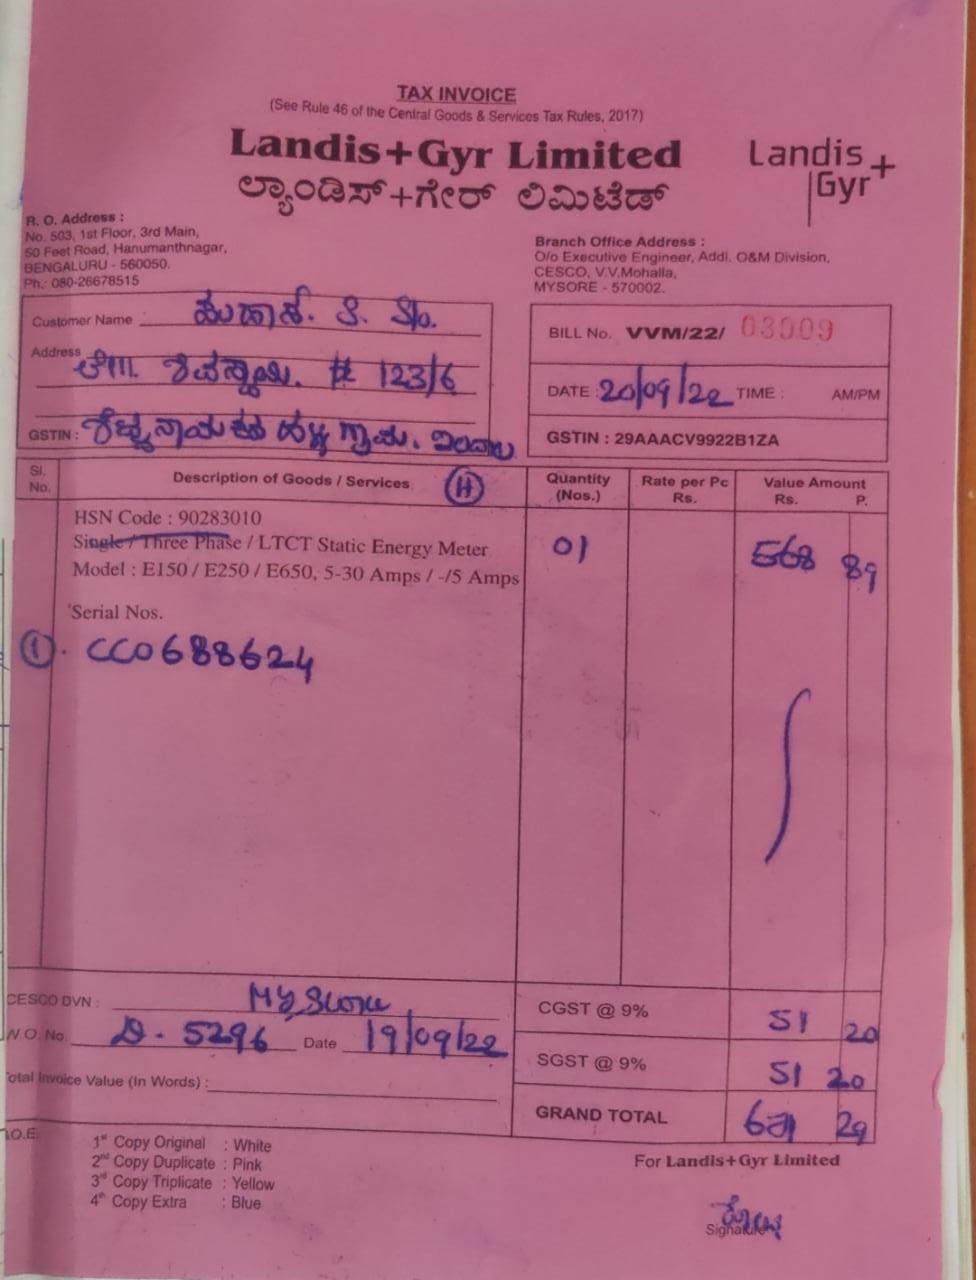 TAX INVOICE
(See Rule 46 of the Central Goods & Services Tax Rules, 2017)
Landis+Gyr Limited
ಲ್ಯಾಂಡಿಸ್+ಗೇರ್ ಲಿಮಿಟೆಡ್
Landis+
Gyr
R. O. Address :
No. 503, 1st Floor, 3rd Main,
50 Feet Road, Hanumanthnagar,
BENGALURU - 560050.
Ph.: 080-26678515
Branch Office Address :
O/o Executive Engineer, Addl. O&M Division,
CESCO, V.V.Mohalla,
MYSORE - 570002.
Customer Name ಸುಹಾಸ್. S/o.
Address # 123/6
GSTIN : ಗ್ರಾಮ.
BILL No. VVM/22/ 03909
DATE : 20/09/22 TIME : AM/PM
GSTIN : 29AAACV9922B1ZA
Sl. No. Description of Goods / Services (H) Quantity (Nos.) Rate per Pc Rs. Value Amount Rs. P.
HSN Code : 90283010
Single / Three Phase / LTCT Static Energy Meter 01 568 89
Model : E150 / E250 / E650, 5-30 Amps / -/5 Amps
Serial Nos.
1. CC0688624
CESCO DVN :
W.O. No. 5296 Date 19/09/22
Total Invoice Value (In Words) :
CGST @ 9% 51 20
SGST @ 9% 51 20
GRAND TOTAL 671 29
1st Copy Original : White
2nd Copy Duplicate : Pink
3rd Copy Triplicate : Yellow
4th Copy Extra : Blue
For Landis+Gyr Limited
Signature